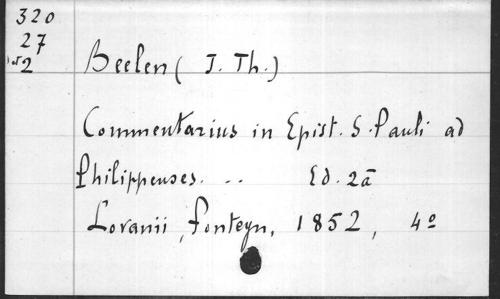 320
27
2
Beelen ( J. Th.)
Commentarius in Epist. S. Pauli ad
Philippenses. .. Ed. 2a
Lovanii, Fonteyn, 1852, 4º